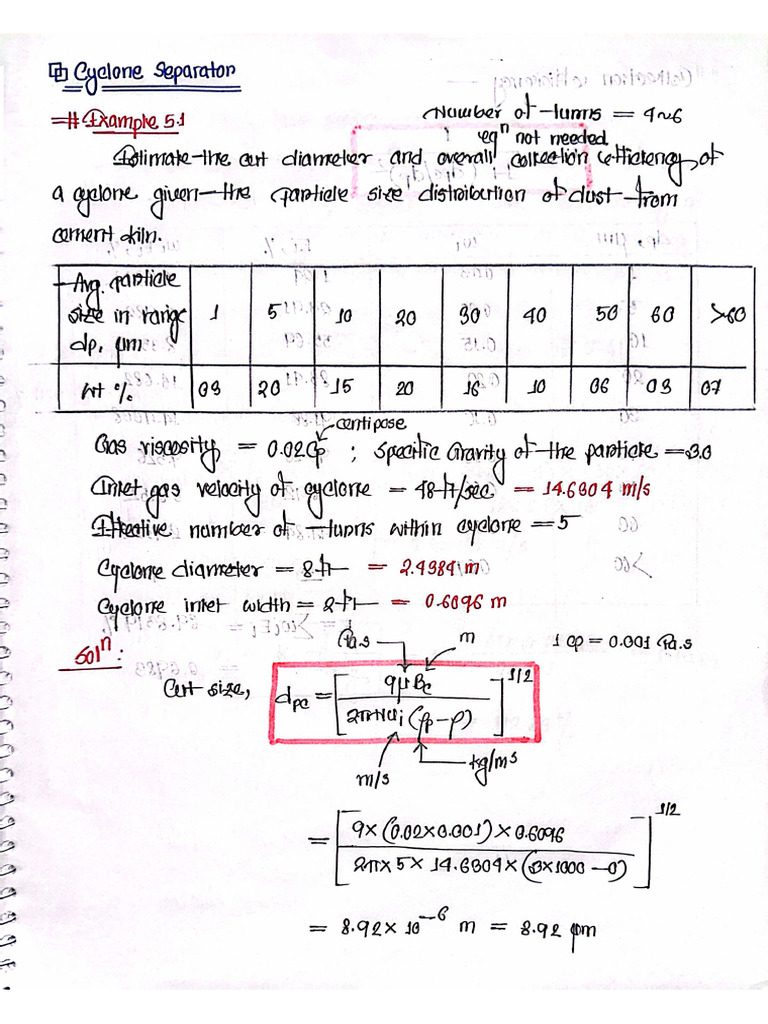 Cyclone Separator
# Example 5.1
Number of turns = 4~6
eqⁿ not needed
Estimate the cut diameter and overall collection efficiency of
a cyclone given the particle size distribution of dust from
cement kiln.
Avg. particle size in range dp, μm | 1 | 5 | 10 | 20 | 30 | 40 | 50 | 60 | >60
wt % | 03 | 20 | 15 | 20 | 16 | 10 | 06 | 03 | 07
centipose
Gas viscosity = 0.02 Cp ; Specific Gravity of the particle = 3.0
Inlet gas velocity of cyclone = 48 ft/sec = 14.6304 m/s
Effective number of turns within cyclone = 5
Cyclone diameter = 8 ft = 2.4384 m
Cyclone inlet width = 2 ft = 0.6096 m
Solⁿ:
Pa.s m 1 cp = 0.001 Pa.s
Cut size, dpc = [9μBc / 2πNvi(ρp-ρ)]^1/2
m/s kg/m3
= [9×(0.02×0.001)×0.6096 / 2π×5×14.6304×(3×1000-0)]^1/2
= 8.92×10^-6 m = 8.92 μm